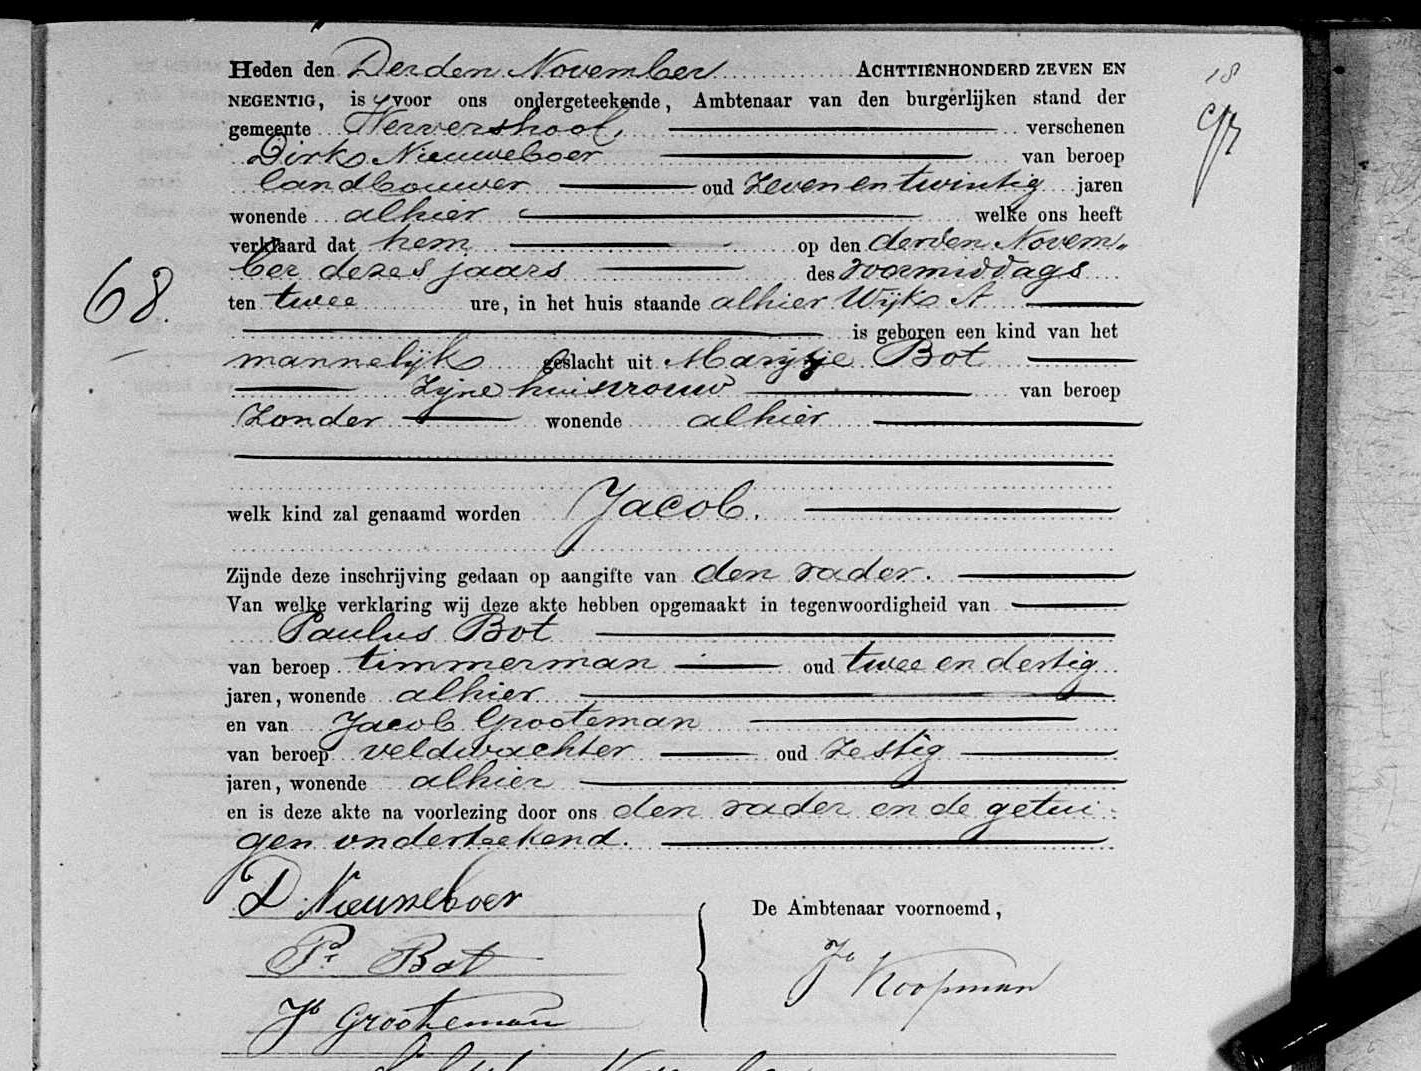 Heden den Derden November ACHTTIENHONDERD ZEVEN EN
18
NEGENTIG, is voor ons ondergeteekende, Ambtenaar van den burgerlijken stand der
97
gemeente Wervershoof, verschenen
Dirk Nieuweboer van beroep
landbouwer oud Zeven en twintig jaren
wonende alhier welke ons heeft
verklaard dat hem op den derden Novem„
ber dezes jaars des voormiddags
68.
ten twee ure, in het huis staande alhier Wijk A
is geboren een kind van het
mannelijk geslacht uit Marijtje Bot
Zijne huisvrouw van beroep
Zonder wonende alhier
welk kind zal genaamd worden Jacob.
Zijnde deze inschrijving gedaan op aangifte van den vader.
Van welke verklaring wij deze akte hebben opgemaakt in tegenwoordigheid van
Paulus Bot
van beroep timmerman oud twee en dertig
jaren, wonende alhier
en van Jacob Grooteman
van beroep veldwachter oud Zestig
jaren, wonende alhier
en is deze akte na voorlezing door ons den vader en de getui-
gen onderteekend.
D Nieuweboer
De Ambtenaar voornoemd,
Pr Bot
Koopman
Jb Grooteman